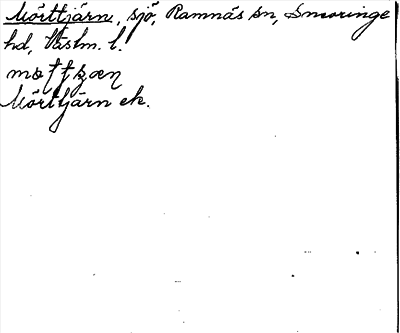 Mörttjärn, sjö, Ramnäs sn, Snevringe
hd, Västm. l.
Mörttjärn ek.